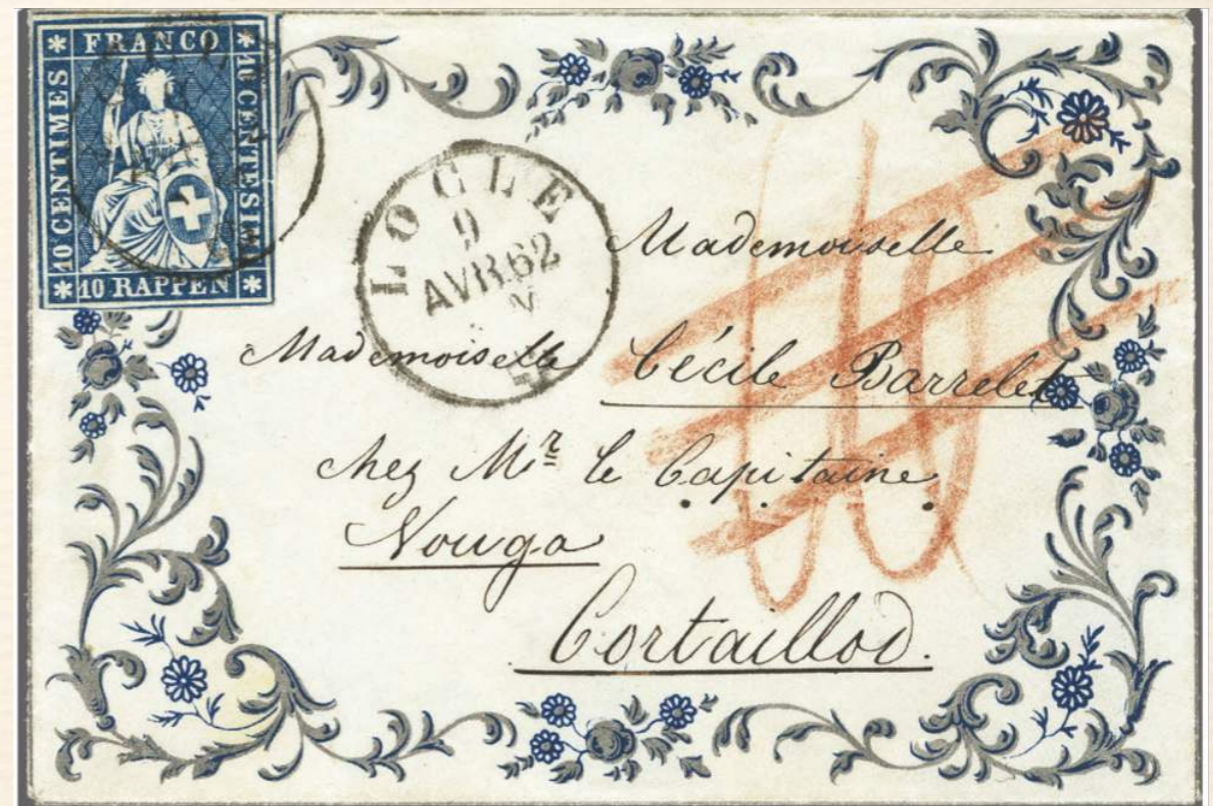 FRANCO
10 CENTIMES
10 CENTESIMI
10 RAPPEN
LOCLE
9
AVR 62
Mademoiselle
Mademoiselle Cécile Barrelet
chez Mr le Capitaine
Vouga
Cortaillod.